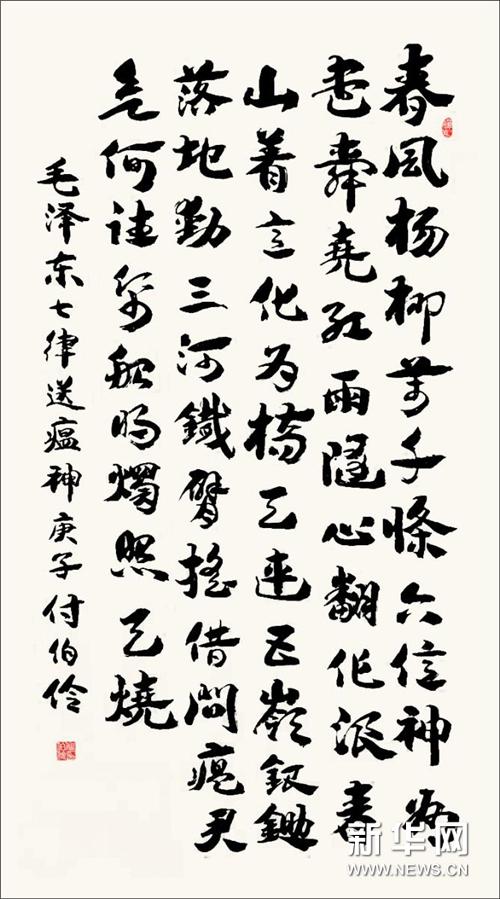 春风杨柳万千條六億神州
尽舜堯红雨隨心翻作浪青
山着意化为橋天連五嶺銀鋤
落地動三河鐵臂搖借問瘟君
欲何往紙船明燭照天燒
毛泽东七律送瘟神庚子付伯伶
新华网
WWW.NEWS.CN